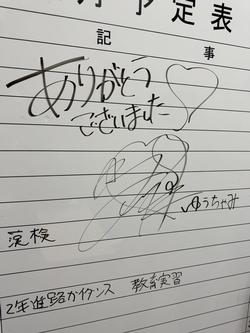 予定表
記事
ありがとう
ございました
ゆうちゃみ
漢検
2年進路ガイダンス 教育実習